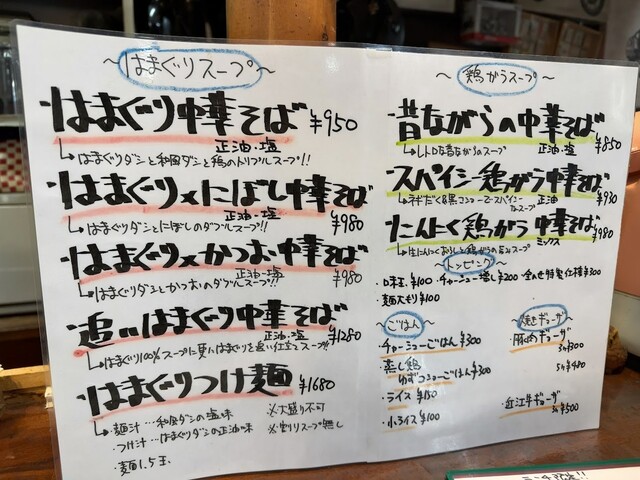 ～はまぐりスープ～
・はまぐり中華そば ¥950
正油・塩
↳はまぐりダシと和風ダシと鶏のトリプルスープ!!
・はまぐり×にぼし中華そば
正油・塩 ¥980
↳はまぐりダシとにぼしのダブルスープ!!
・はまぐり×かつお中華そば
正油・塩 ¥980
↳はまぐりダシとかつおのダブルスープ!!
・追いはまぐり中華そば
正油・塩 ¥1280
↳はまぐり100%スープに更にはまぐりを追い仕立てスープ!!
・はまぐりつけ麺 ¥1680
↳・麺汁…和風ダシの塩味 ※大盛り不可
・つけ汁…はまぐりダシの正油味 ※割りスープ無し
・麺1.5玉
～鶏がらスープ～
・昔ながらの中華そば
正油・塩 ¥850
↳レトロな昔ながらのスープ
・スパイシー鶏がら中華そば
正油 ¥930
↳ネギだく&黒コショーでスパイシーなスープ
・にんにく鶏がら中華そば
ミックス ¥980
↳生にんにくおろしと鶏がらの旨みスープ
～トッピング～
・味玉¥100 ・チャーシュー増し¥200 ・全のせ特製仕様¥300
・麺大もり¥100
～ごはん～
・チャーシューごはん ¥300
・蒸し鶏
ゆずコショーごはん ¥300
・ライス ¥150
・小ライス ¥100
～焼きギョーザ～
・豚肉ギョーザ
3ヶ¥300
5ヶ¥480
・近江牛ギョーザ
3ヶ¥500